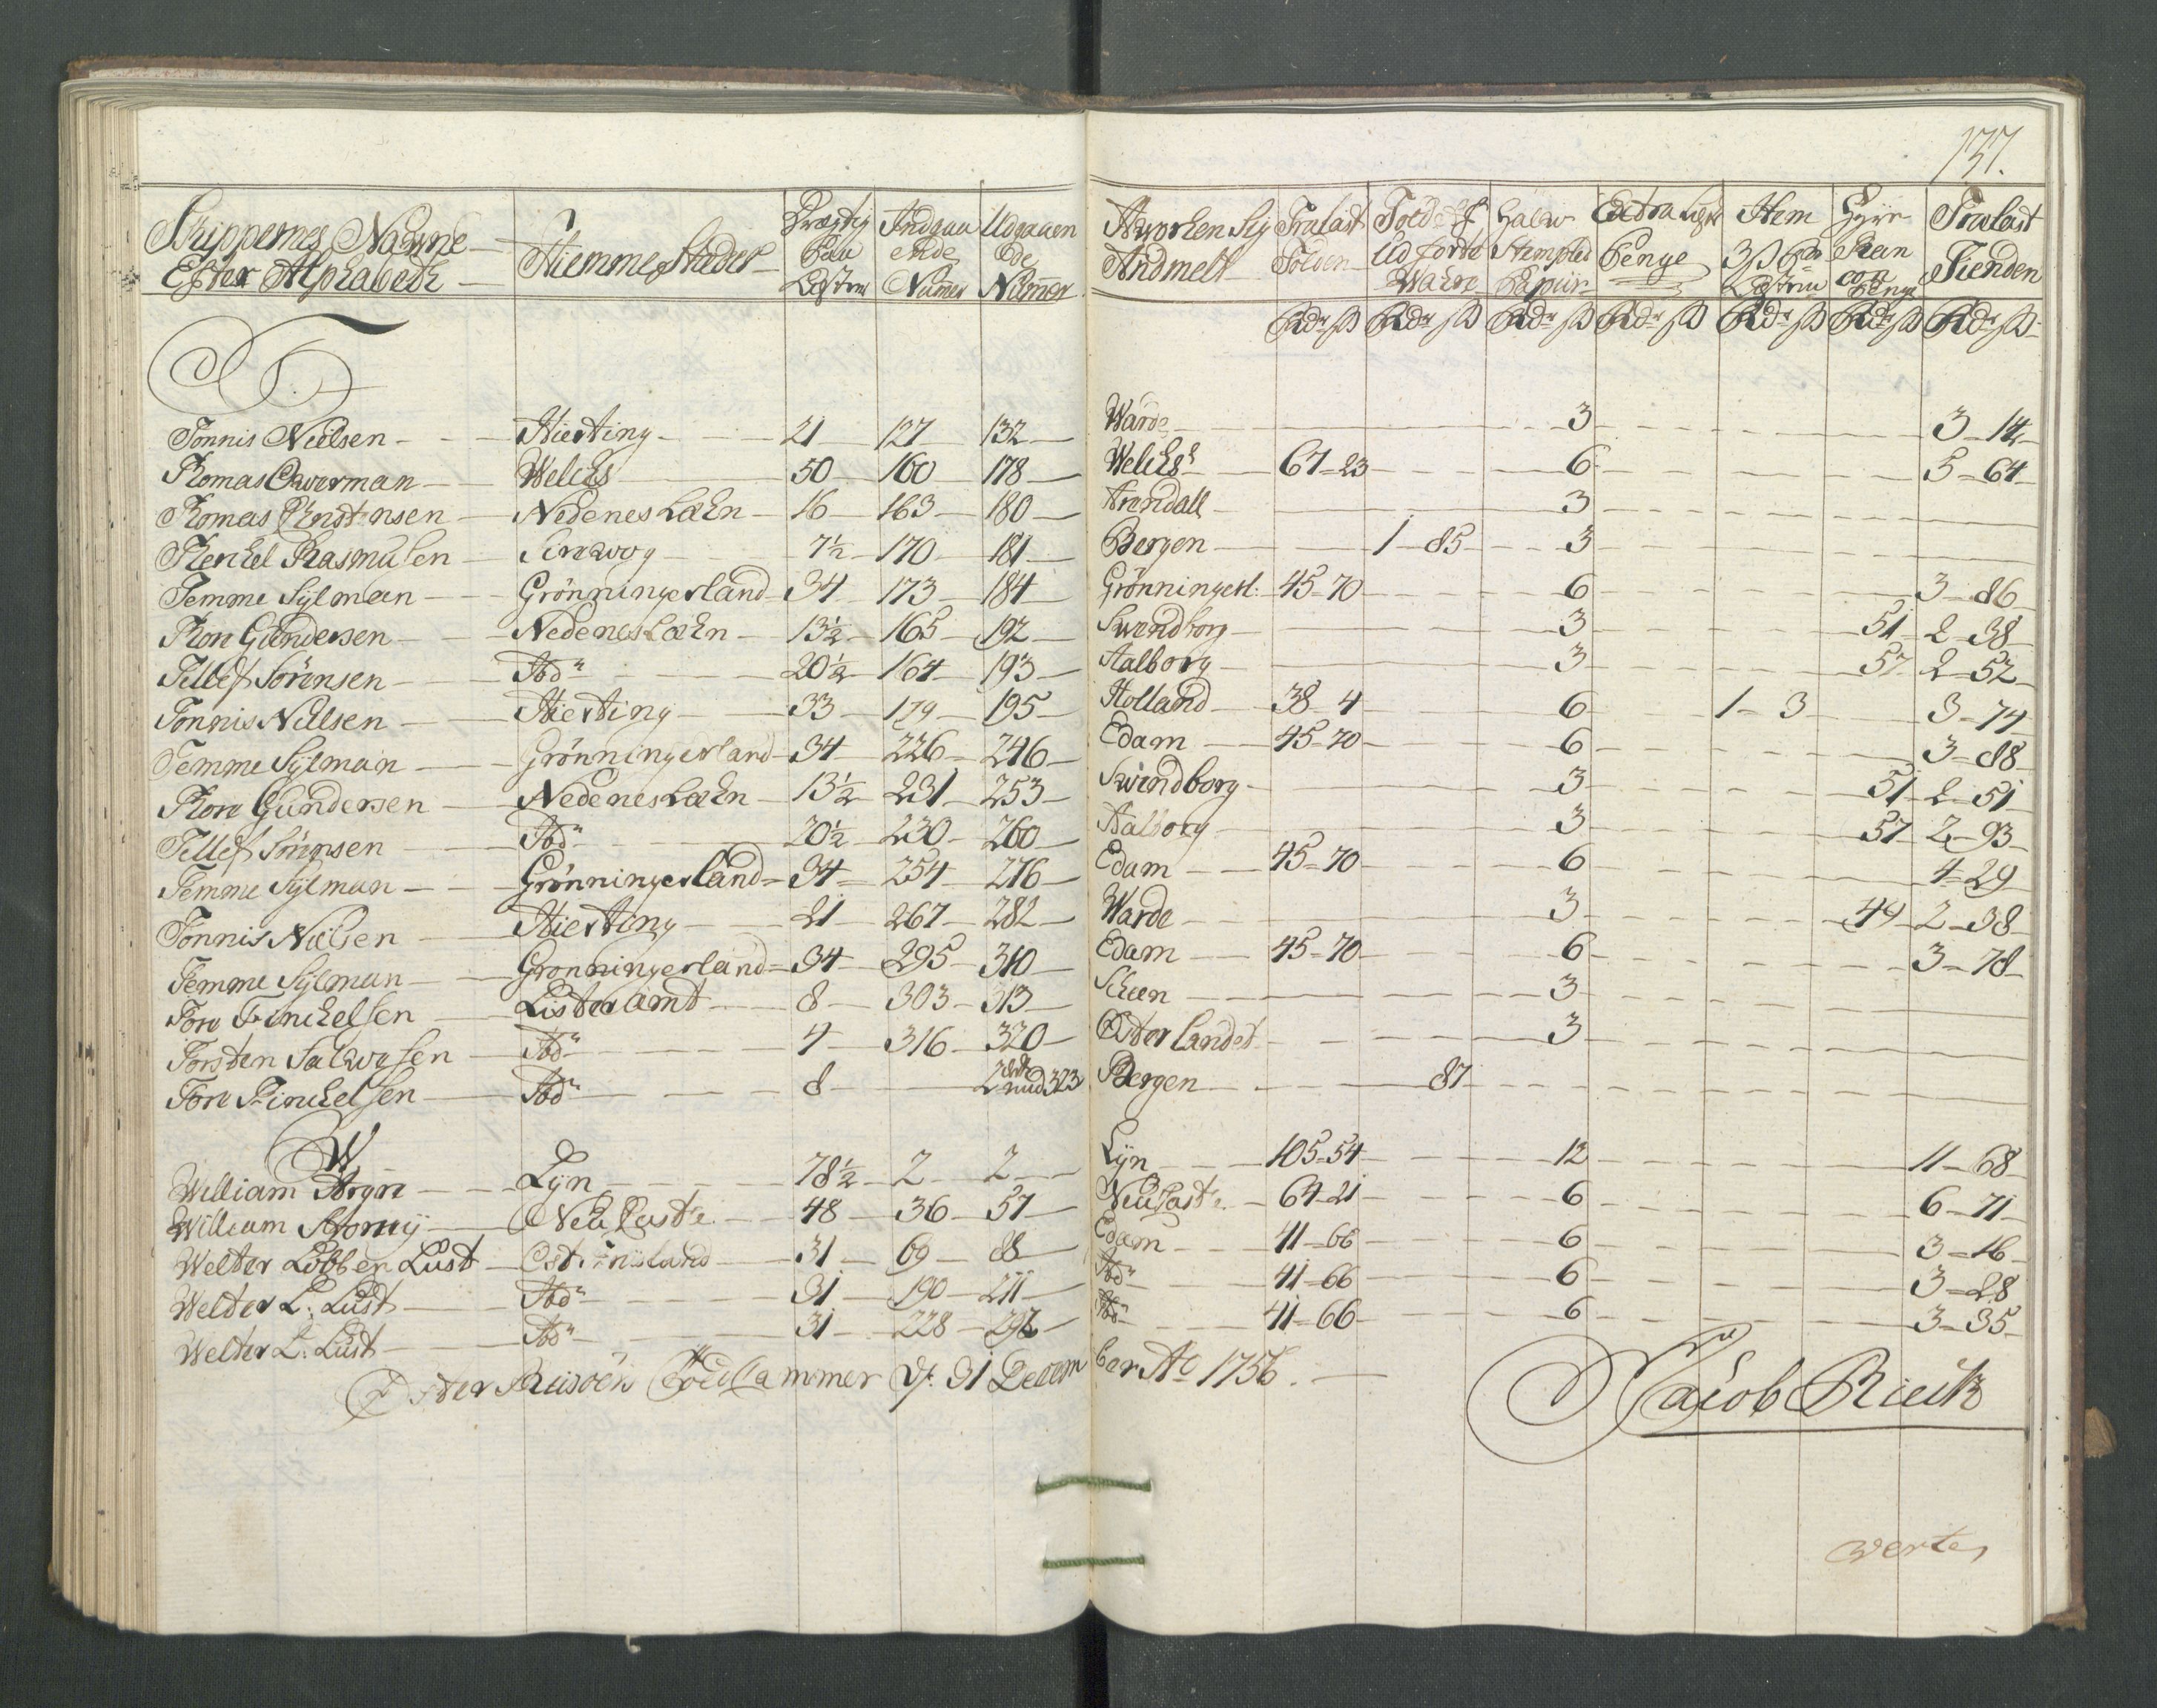 137.
Skippernes Nawne Efter Alphabeth Hiemme Stæder Drægtig Paa Læster Indgaaende Numer Udgaaende Numer Hworhen Sig Andmelt Tralast Tolden Told Af Udførde Wahre Halw Stempled Papiir Extra Penge Item 3 ß Pr Læstrii Fyr Kencon Penge Tralast Tienden
Rdr ß Rdr ß Rdr ß Rdr ß Rdr ß Rdr ß Rdr ß
T.
Tonnis Nielsen Hierting 21 127 132 Warde 3 3 14
Thomas Owerman Welchs 50 160 178 Welchs 67 23 6 5 64
Thomas Nedenes Læhn 16 163 180 Arendall 3
Therkel Rasmusen 7½ 170 181 Bergen 1 85 3
Temme Sÿlman Grönningerland 34 173 184 Grönningerl: 45 70 6 3 86
Thore Gundersen Nedenes Læhn 13½ 165 192 Swendborg 3 51 2 38
Tellef Sörensen Ibdn 20½ 164 193 Aalborg 3 57 2 52
Tonnis Nielsen Hierting 33 179 195 Holland 38 4 6 1 3 3 74
Temme Sÿlman Grönningerland 34 226 246 Edam 45 70 6 3 88
Thore Gundersen Nedenes Læhn 13½ 231 253 Swindborg 3 51 2 51
Tellef Sörensen Ibdn 20½ 230 260 Aalborg 3 57 2 93
Temme Sÿlman Grönningerland 34 254 276 Edam 45 70 6 4 29
Tonnis Nielsen Hierting 21 267 282 Warde 3 49 2 38
Temme Sÿlman Grönningerland 34 295 310 Edam 45 70 6 3 78
Tore Finckelsen Lister amt 8 303 313 Scheen 3
Torsten Salwesen Ibdn 4 316 320 Østerlandet 3
Tore Finckelsen Ibdn 8 323 Bergen 87
W
William Lÿn 78½ 2 2 Lÿn 105 54 12 11 68
William Neu Castle 48 36 57 Neu Castle 64 21 6 6 71
Welter Lobben Lust Ost frisland 31 69 88 Edam 41 66 6 3 16
Welter L: Lust Ibdn 31 190 211 Ibdn 41 66 6 3 28
Welter L: Lust Ibdn 31 228 Ibdn 41 66 6 3 35
Öster Riisöer Told Cammer d. 31 December Ao 1756.
Jacob Rieck
Verte